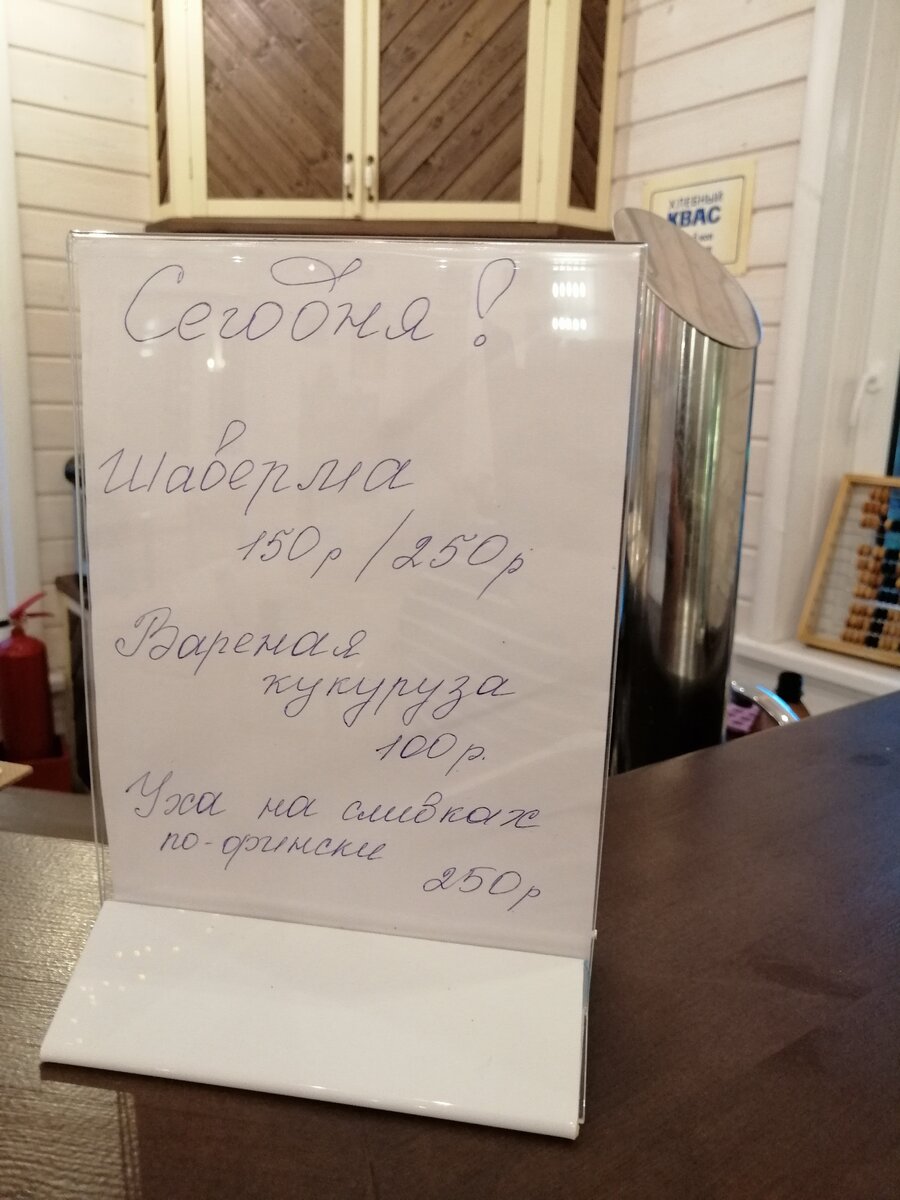 Сегодня!
Шаверма
150р/250р
Вареная
кукуруза
100р.
Уха на сливках
по-фински
250р
ХЛЕБНЫЙ
КВАС